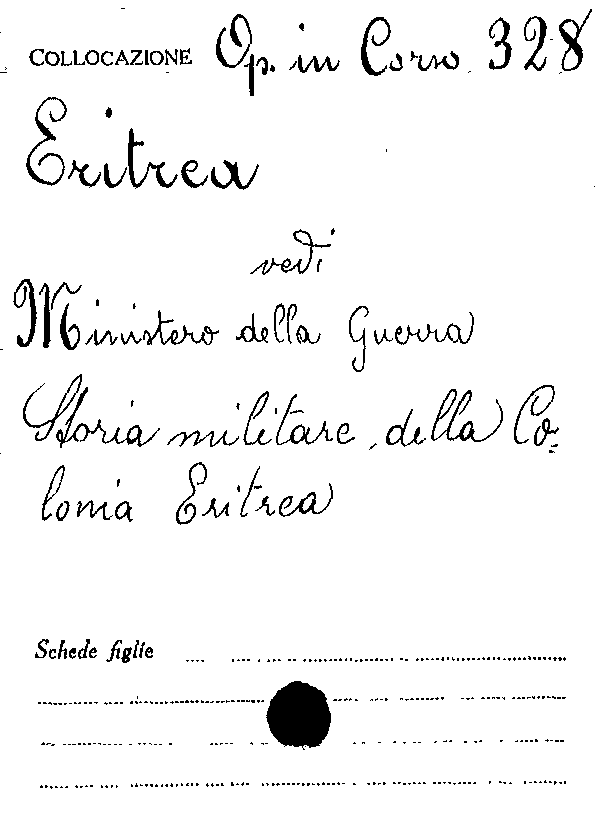 COLLOCAZIONE Op. in Corso 328
Eritrea
vedi
Ministero della Guerra
Storia militare della Co=
lonia Eritrea
Schede figlie